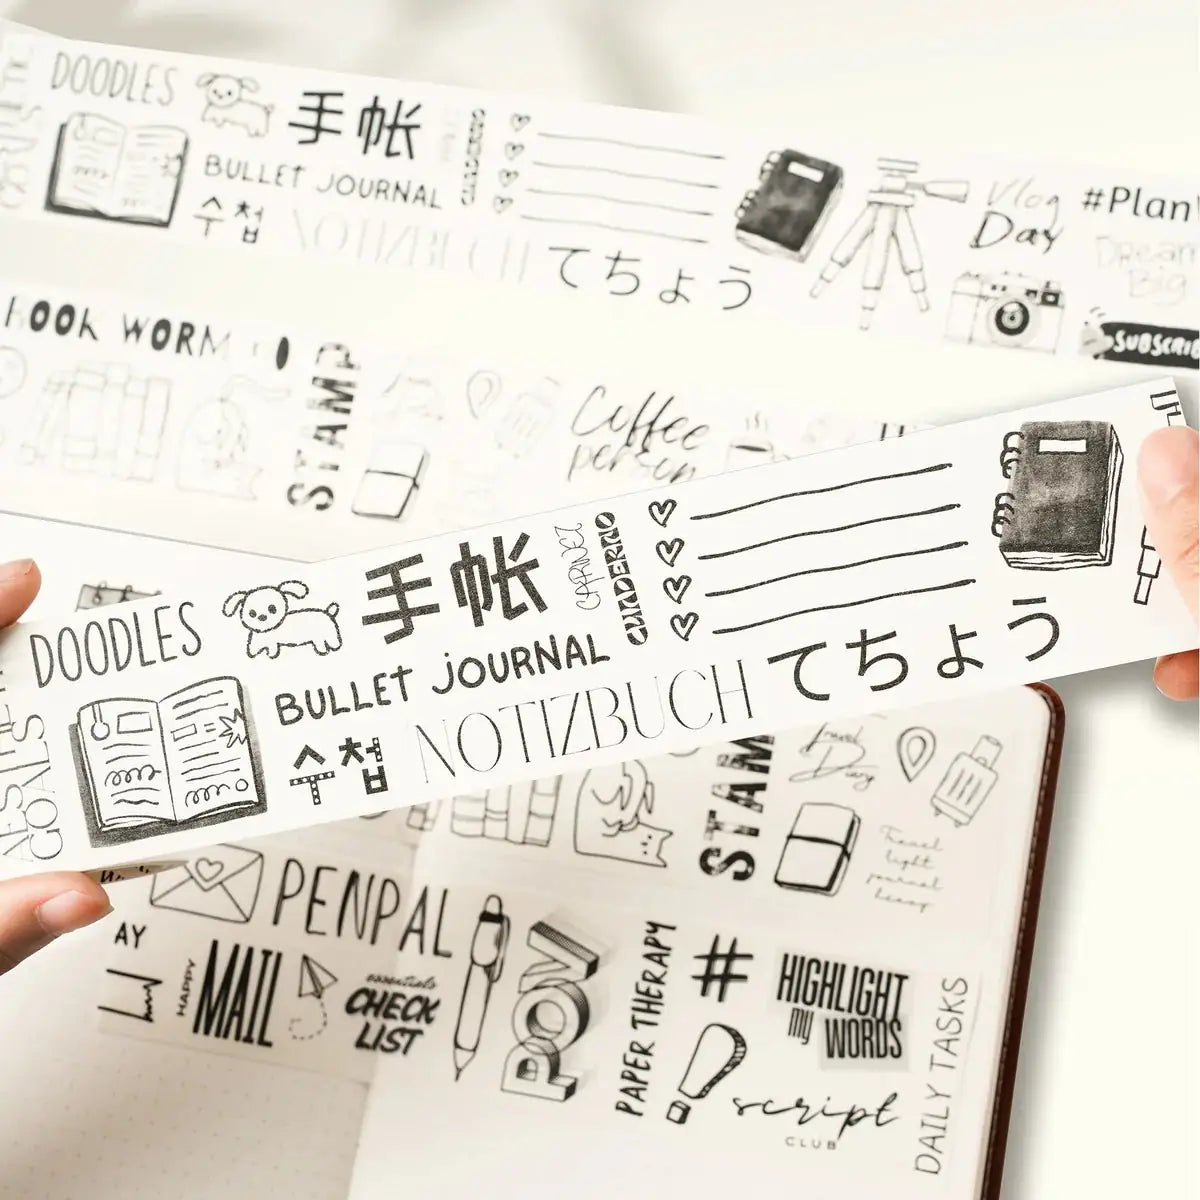 DOODLES
手帳
BULLET JOURNAL
수첩
NOTIZBUCH
CUADERNO
てちょう
Vlog
Day
#Plan
Dream
Big
SUBSCRIB
BOOK WORM
STAMP
Coffee
person
AESTHETIC
GOALS
DOODLES
手帳
CARNET
CUADERNO
BULLET JOURNAL
수첩
NOTIZBUCH
てちょう
STAM
Travel
Diary
Travel
light
journal
heavy
PENPAL
AY
HAPPY
MAIL
essentials
CHECK
LIST
POV
PAPER THERAPY
#
!
HIGHLIGHT
my WORDS
script
CLUB
DAILY TASKS